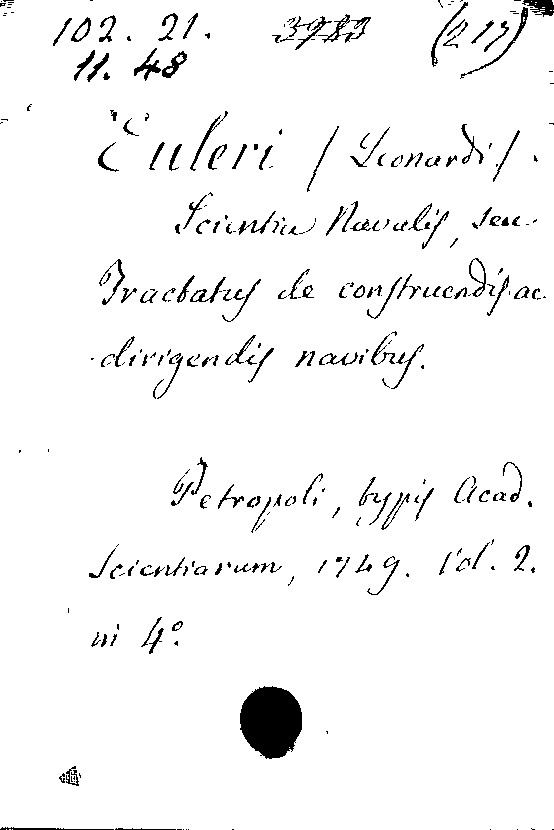 102. 21. 3983 (217)
11. 48
Euleri / Leonardi /.
Scientia Navalis, seu
Tractatus de construendis ac
dirigendis navibus.
Petropoli, typis Acad.
Scientiarum, 1749. Vol. 2.
in 4°.